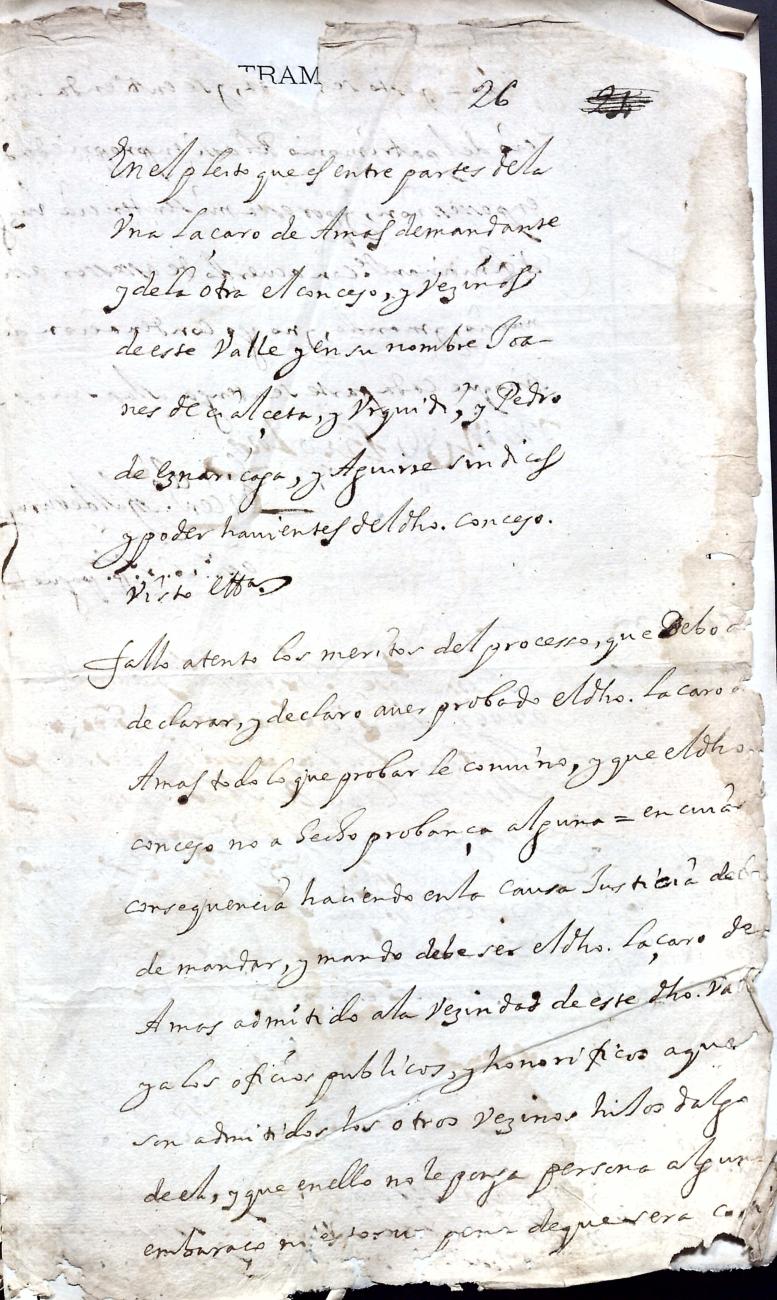 TRAM
26
En el pleito que es entre partes dela
Vna Laçaro de Amas demandante
y dela otra el concejo, y Vezinos
de este Valle y en su nombre Joa-
nes de çalçeta, y Vrquidi, y Pedro
de Eznaricaga, y Aguirre sindicos
y poder hauientes del dho. concejo.
Visto Ettª.
Fallo atento los meritos del processo, que Debo
declarar, y declaro auer probado el dho. Lacaro
Amas todo lo que probar le conuino, y que el dho
concejo no a hecho probança alguna = en cuia
consequencia haciendo en la causa Justicia
de mandar, y mando debe ser el dho. Laçaro de
Amas admitido ala Vezindad de este dho.
y a los oficios publicos, y honorificos aque
son admitidos los otros Vezinos hilos dalgo
de el, y que en ello no le ponga persona
embaraço ni pena de que sera